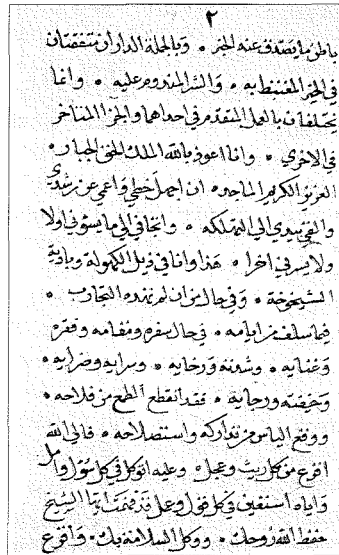 ٢
باطن ما يصدق عنه الخبر • وبالجملة الداران متفقتان
في الخير المغتبط به • والشر المندوم عليه • وانما
يختلفان بالعمل المتقدم في احداهما والجزا المتاخر
في الاخري • وانا اعوذ بالله الملك الحق الجبار •
العزيز الكريم الماجد • ان اجهل حظي واعمي عن رشدي
والقي بيدي الي التهلكه • واتجافي الي ما يسؤني اولا
ولا يسرني اخرا • هذا وانا في ذيل الكهولة وبادية
الشيخوخة • وفي حال من ان لم تهده التجارب •
فيما سلف من ايامه • في حال سفره ومقامه وفقره
وغنايه • وشدته ورخايه • وسرايه وضرايه •
وخيفته ورجايه • فقد انقطع الطمع من فلاحه •
ووقع الياس من تداركه واستصلاحه • فالي الله
افزع من كل ريث وعجل • وعليه اتوكل في كل سؤل وامل
واياه استعين في كل قول وعمل قد فهمت ايها الشيخ
حفظ الله روحك • ووكل السلامة بك • وافرغ